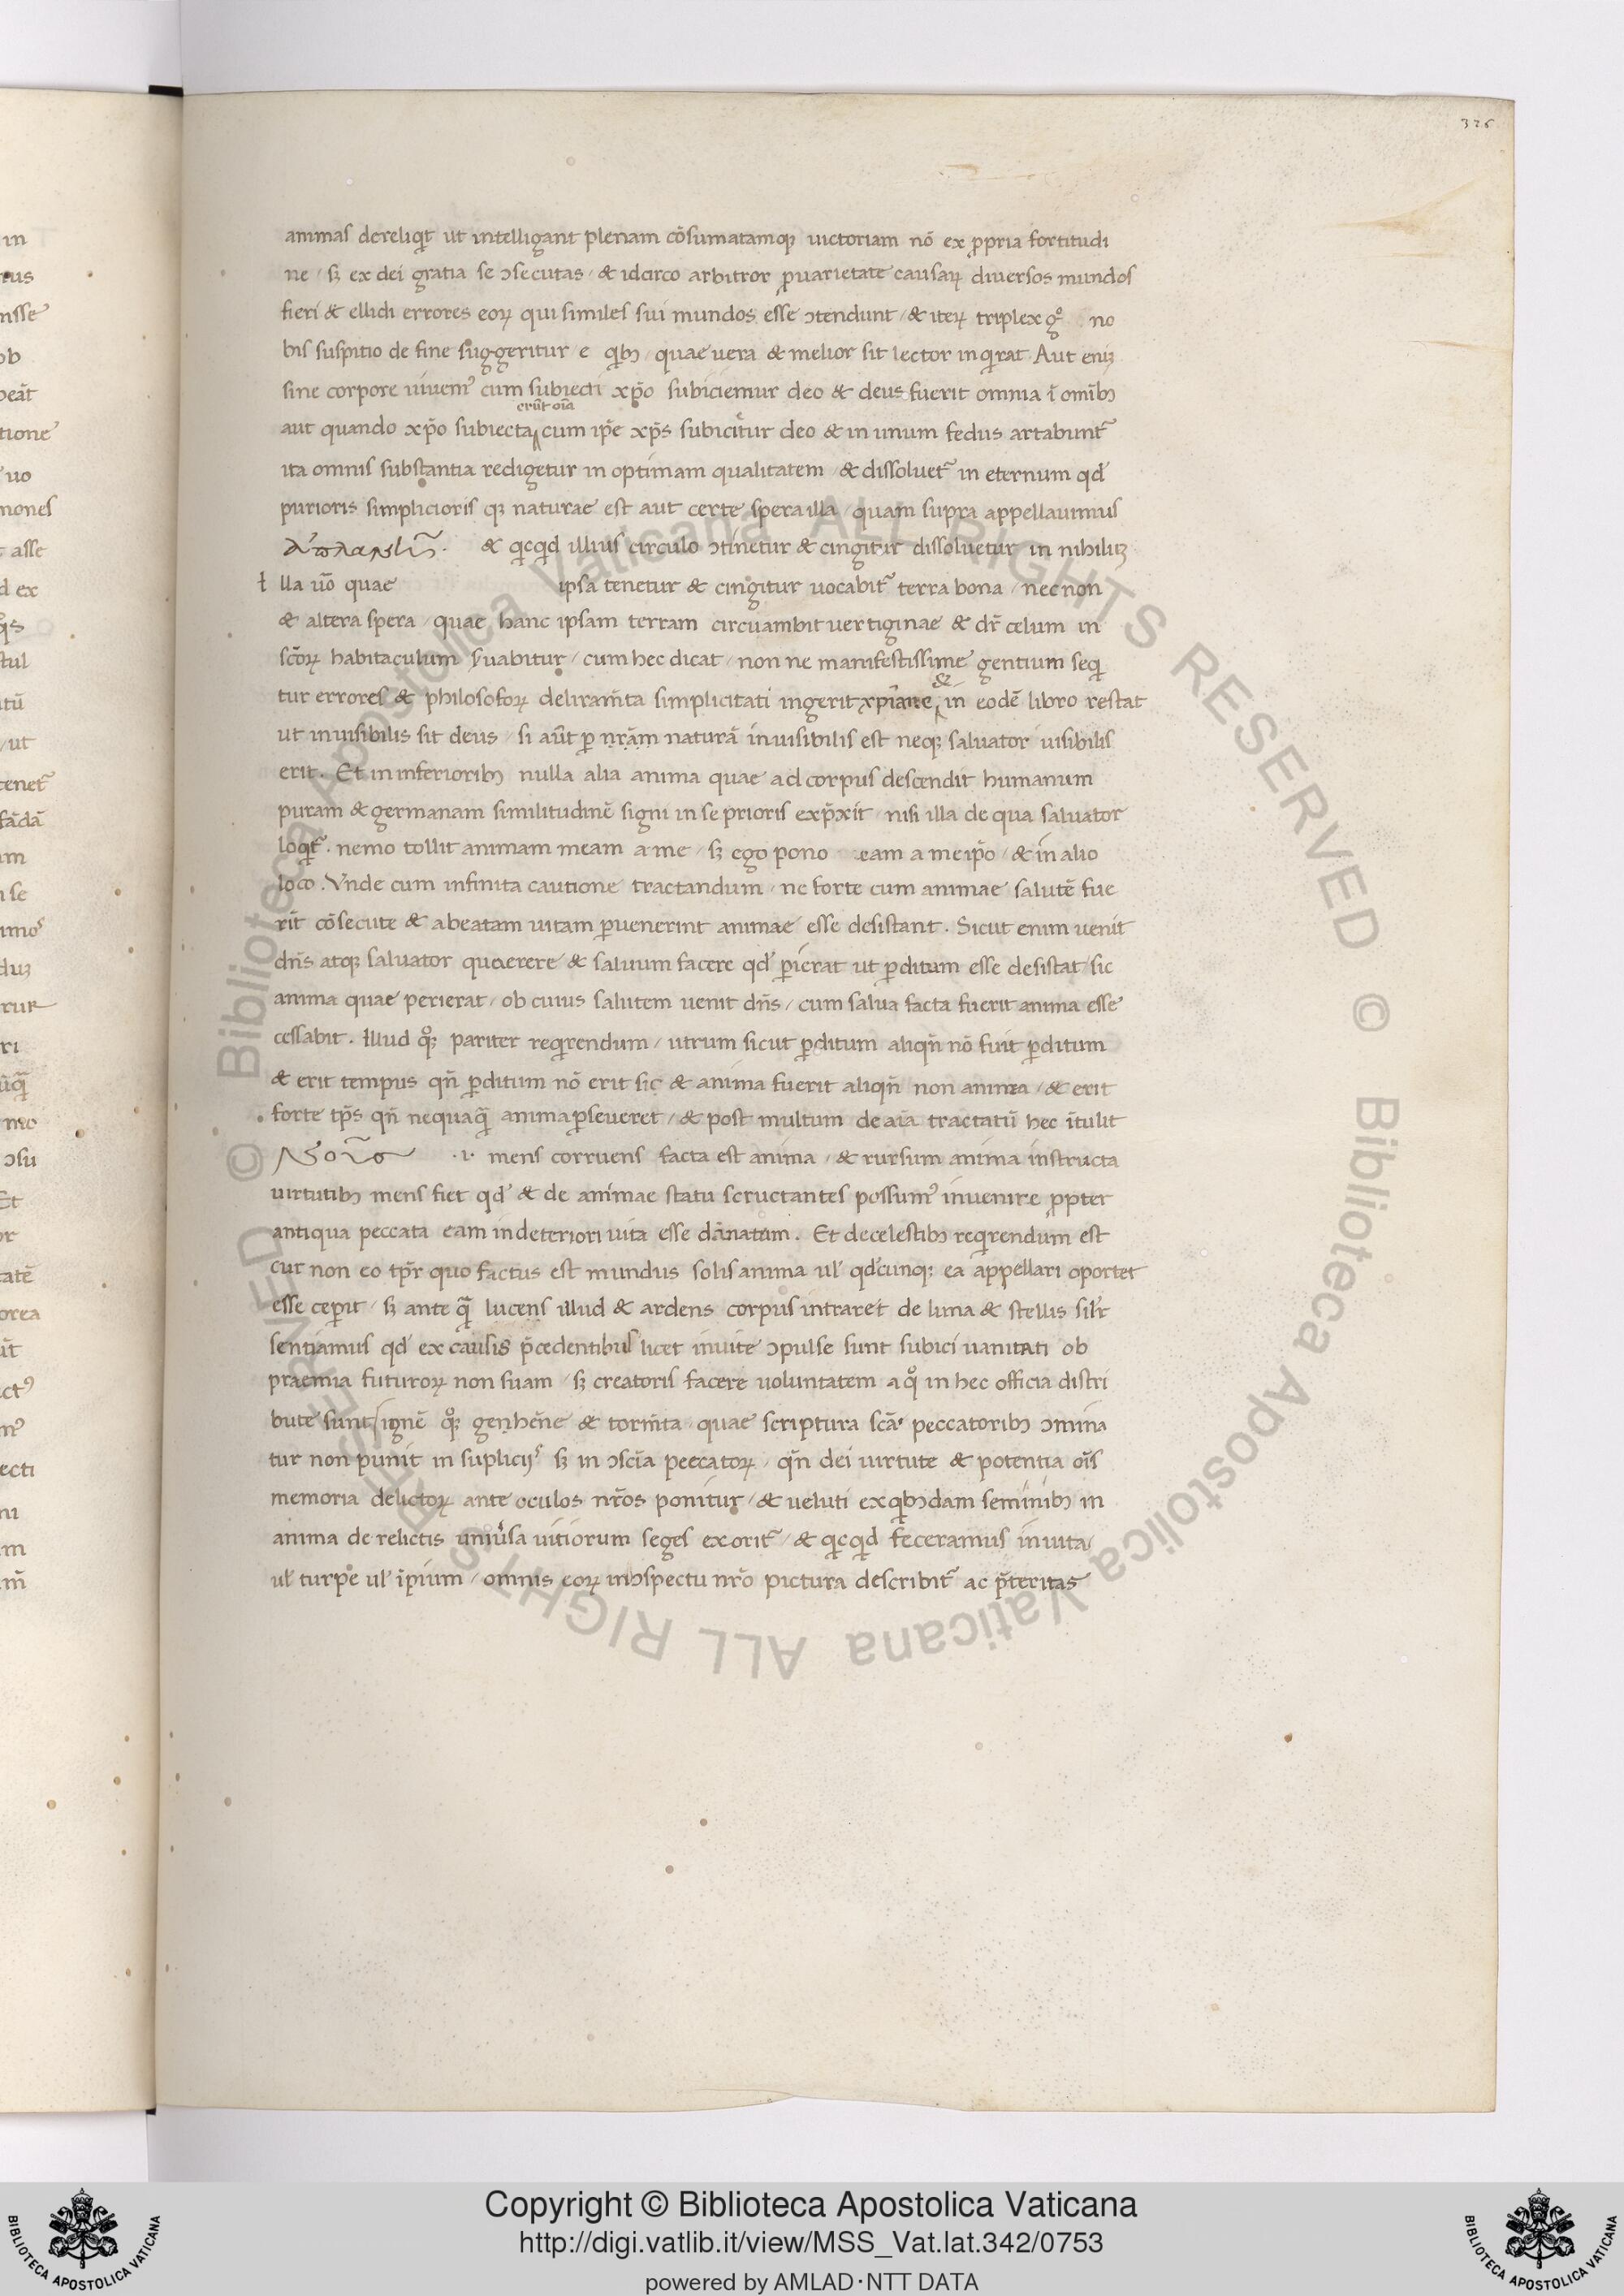 325
animas dereliqt ut intelligant plenam cõsumatamqꝫ uictoriam nõ ex ꝓpria fortitudi
ne / sꝫ ex dei gratia se ↄsecutas / & idcirco arbitror ꝓuarietate causaꝝ diuersos mundos
fieri & ellidi errores eoꝝ qui similes sui mundos esse ↄtendunt / & iteꝝ triplex gº no
bis suspitio de fine suggeritur e qibꝫ / quae uera & melior sit lector inqirat Aut eniꝫ
sine corpore uiuemꝰ cum subiecti xp̃o subiciemur deo & deus fuerit omnia ĩ omĩbꝫ
erũt oĩa
aut quando xp̃o subiecta cum ip̃e xp̃s subicietur deo & in unum fedus artabunt᷑
ita omnis substantia redigetur in optimam qualitatem / & dissoluet᷑ in eternum qd̓
purioris simplicioris qꝫ naturae est aut certe spera illa / quam supra appellauimus
& qicqid illius circulo ↄtinetur & cingitur dissoluetur in nihiluꝫ
ł lla uõ quae ipsa tenetur & cingitur uocabit᷑ terra bona / nec non
& altera spera / quae hanc ipsam terram circuambit uertiginae & dr̃ celum in
sc̃oꝝ habitaculum s̓uabitur / cum hec dicat / non ne manifestissime gentium seqi
&
tur errores & philosofoꝝ deliram̃ta simplicitati ingerit xp̃iane in eodẽ libro restat
ut inuisibilis sit deus / si aũt ꝑ nr̃ãm naturã inuisibilis est neqꝫ saluator uisibilis
erit. Et in inferioribꝫ nulla alia anima quae ad corpus descendit humanum
puram & germanam similitudinẽ signi in se prioris exp̃xit / nisi illa de qua saluator
loqit᷑. nemo tollit animam meam a me / sꝫ ego pono eam a meip̃o / & in alio
loco. Vnde cum infinita cautione tractandum / ne forte cum animae salutẽ fue
rĩt cõsecute & abeatam uitam ꝑuenerint animae esse desistant. Sicut enim uenit
dñs atqꝫ saluator quaerere & saluum facere qd̓ ꝑierat ut ꝑditum esse desistat / sic
anima quae perierat / ob cuius salutem uenit dñs / cum salua facta fuerit anima esse
cessabit. Illud qºꝫ pariter reqirendum / utrum sicut ꝑditum aliqñ nõ fuit ꝑditum
& erit tempus qñ ꝑditum nõ erit sic & anima fuerit aliqñ non anima / & erit
forte tp̃s qñ nequaqã anima ꝑseueret / & post multum de aĩa tractatũ hec ĩtulit
.i. mens corruens facta est anima / & rursum anima instructa
uirtutibꝫ mens fiet qd̓ & de animae statu scructantes possumꝰ inuenire ꝓpter
antiqua peccata eam indeteriori uita esse dãnatam. Et decelestibꝫ reqirendum est
cur non eo tp̃r quo factus est mundus solis anima ul̓ qd̓cunqꝫ ea appellari oportet
esse cepit / sꝫ ante qã lucens illud & ardens corpus intraret de luna & stellis sil̓r
sentiamus qd̓ ex causis p̃cedentibus licet inuite ↄpulse sunt subici uanitati ob
praemia futuroꝝ non suam / sꝫ creatoris facere uoluntatem aqº in hec officia distri
bute sunt / ignẽ qºꝫ genhẽne & torm̃ta / quae scriptura sc̃a peccatoribꝫ ↄmina
tur non punit in supliciꝭ sꝫ in ↄsc̃ia peccatoꝝ / qñ dei uirtute & potentia oĩs
memoria delictoꝝ ante oculos nr̃os ponitur / & ueluti exqibꝫdam seminibꝫ in
anima de relictis uniũsa uitiorum seges exorit᷑ / & qicqid feceramus inuita /
ul̓ turpe ul̓ ĩpium / omnis eoꝝ inↄspectu nr̃o pictura describit᷑ ac p̃teritas
Copyright © Biblioteca Apostolica Vaticana
http://digi.vatlib.it/view/MSS_Vat.lat.342/0753
powered by AMLAD·NTT DATA
BIBLIOTECA APOSTOLICA VATICANA
BIBLIOTECA APOSTOLICA VATICANA
© Biblioteca Apostolica Vaticana ALL RIGHTS RESERVED © Biblioteca Apostolica Vaticana ALL RIGHTS RESERVED